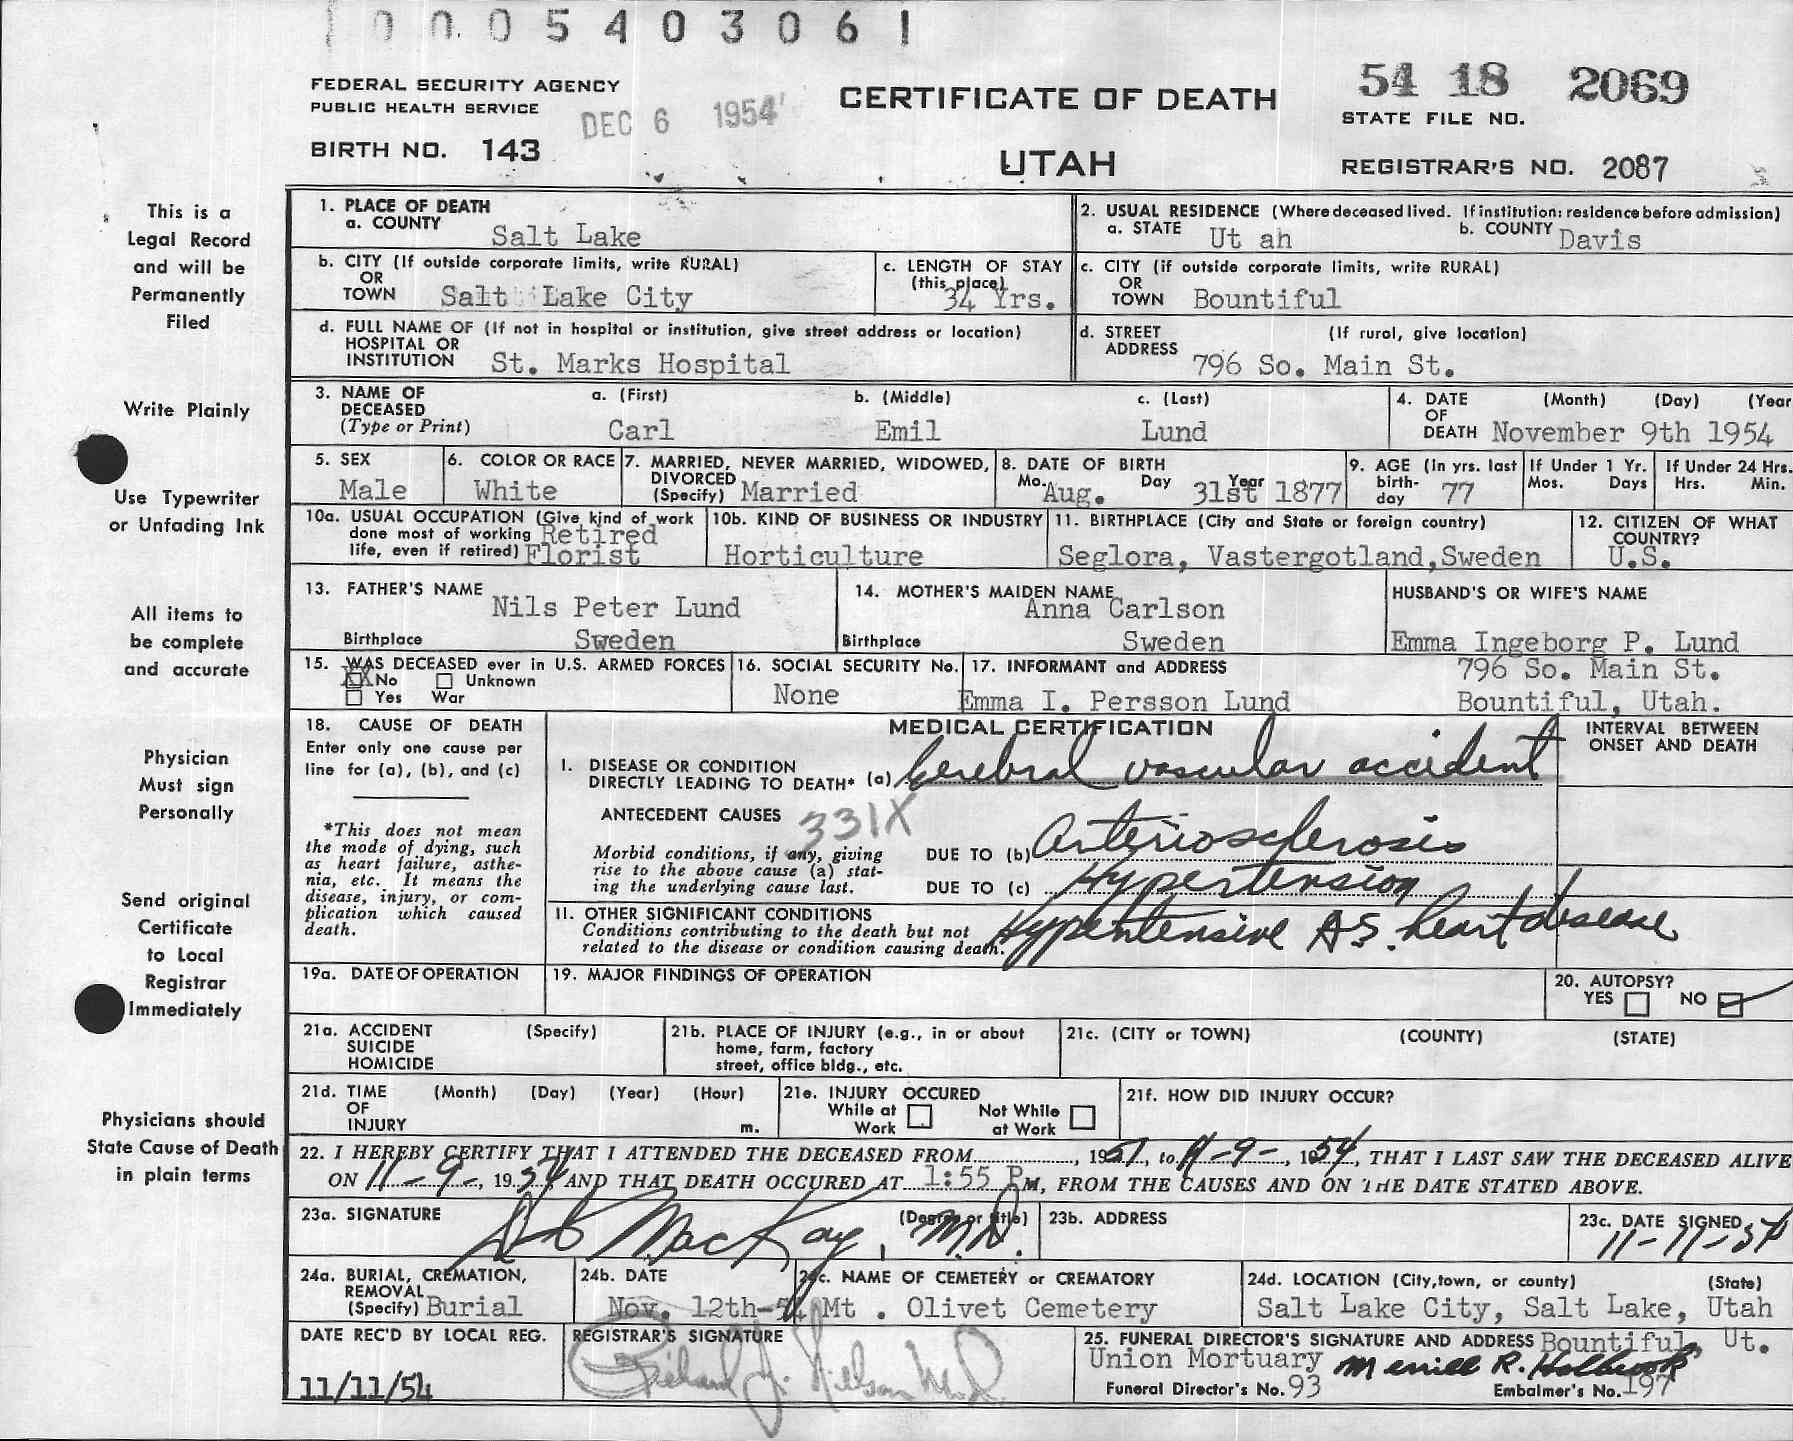 10005403061
FEDERAL SECURITY AGENCY
PUBLIC HEALTH SERVICE
DEC 6 1954
CERTIFICATE OF DEATH
54 18 2069
STATE FILE NO.
BIRTH NO. 143
UTAH
REGISTRAR'S NO. 2087
This is a
Legal Record
and will be
Permanently
Filed
Write Plainly
Use Typewriter
or Unfading Ink
All items to
be complete
and accurate
Physician
Must sign
Personally
Send original
Certificate
to Local
Registrar
Immediately
Physicians should
State Cause of Death
in plain terms
1. PLACE OF DEATH
a. COUNTY Salt Lake
2. USUAL RESIDENCE (Where deceased lived. If institution: residence before admission)
a. STATE Ut ah b. COUNTY Davis
b. CITY (If outside corporate limits, write RURAL)
OR
TOWN Salt Lake City
c. LENGTH OF STAY
(this place)
34 Yrs.
c. CITY (if outside corporate limits, write RURAL)
OR
TOWN Bountiful
d. FULL NAME OF (If not in hospital or institution, give street address or location)
HOSPITAL OR
INSTITUTION St. Marks Hospital
d. STREET (If rural, give location)
ADDRESS 796 So. Main St.
3. NAME OF a. (First) b. (Middle) c. (Last)
DECEASED
(Type or Print) Carl Emil Lund
4. DATE (Month) (Day) (Year
OF
DEATH November 9th 1954
5. SEX
Male
6. COLOR OR RACE
White
7. MARRIED, NEVER MARRIED, WIDOWED,
DIVORCED
(Specify) Married
8. DATE OF BIRTH
Mo. Day Year
Aug. 31st 1877
9. AGE (In yrs. last
birth-
day 77
If Under 1 Yr.
Mos. Days
If Under 24 Hrs.
Hrs. Min.
10a. USUAL OCCUPATION (Give kind of work
done most of working Retired
life, even if retired) Florist
10b. KIND OF BUSINESS OR INDUSTRY
Horticulture
11. BIRTHPLACE (City and State or foreign country)
Seglora, Vastergotland, Sweden
12. CITIZEN OF WHAT
COUNTRY?
U.S.
13. FATHER'S NAME
Nils Peter Lund
Birthplace Sweden
14. MOTHER'S MAIDEN NAME
Anna Carlson
Birthplace Sweden
HUSBAND'S OR WIFE'S NAME
Emma Ingeborg P. Lund
15. WAS DECEASED ever in U.S. ARMED FORCES
XX No Unknown
Yes War
16. SOCIAL SECURITY No.
None
17. INFORMANT and ADDRESS 796 So. Main St.
Emma I. Persson Lund Bountiful, Utah.
18. CAUSE OF DEATH
Enter only one cause per
line for (a), (b), and (c)
*This does not mean
the mode of dying, such
as heart failure, asthe-
nia, etc. It means the
disease, injury, or com-
plication which caused
death.
MEDICAL CERTIFICATION
INTERVAL BETWEEN
ONSET AND DEATH
I. DISEASE OR CONDITION
DIRECTLY LEADING TO DEATH* (a) Cerebral vascular accident
ANTECEDENT CAUSES 331X
Morbid conditions, if any, giving
rise to the above cause (a) stat-
ing the underlying cause last.
DUE TO (b) Arteriosclerosis
DUE TO (c) Hypertension
II. OTHER SIGNIFICANT CONDITIONS
Conditions contributing to the death but not
related to the disease or condition causing death. Hypertensive A.S. heart disease
19a. DATE OF OPERATION
19. MAJOR FINDINGS OF OPERATION
20. AUTOPSY?
YES NO
21a. ACCIDENT (Specify)
SUICIDE
HOMICIDE
21b. PLACE OF INJURY (e.g., in or about
home, farm, factory
street, office bldg., etc.
21c. (CITY or TOWN) (COUNTY) (STATE)
21d. TIME (Month) (Day) (Year) (Hour)
OF
INJURY m.
21e. INJURY OCCURED
While at Not While
Work at Work
21f. HOW DID INJURY OCCUR?
22. I HEREBY CERTIFY THAT I ATTENDED THE DECEASED FROM, 1951, to 11-9-, 1954, THAT I LAST SAW THE DECEASED ALIVE
ON 11-9-, 1954 AND THAT DEATH OCCURED AT 1:55 P.M, FROM THE CAUSES AND ON THE DATE STATED ABOVE.
23a. SIGNATURE (Degree or title)
MacKay, M.D.
23b. ADDRESS
23c. DATE SIGNED
11-11-54
24a. BURIAL, CREMATION,
REMOVAL
(Specify) Burial
24b. DATE
Nov. 12th-54
24c. NAME OF CEMETERY or CREMATORY
Mt . Olivet Cemetery
24d. LOCATION (City, town, or county) (State)
Salt Lake City, Salt Lake, Utah
DATE REC'D BY LOCAL REG.
11/11/54
REGISTRAR'S SIGNATURE
Richard J. Nielson M.D.
25. FUNERAL DIRECTOR'S SIGNATURE AND ADDRESS Bountiful, Ut.
Union Mortuary Merrill R. Holbrook
Funeral Director's No. 93 Embalmer's No. 197